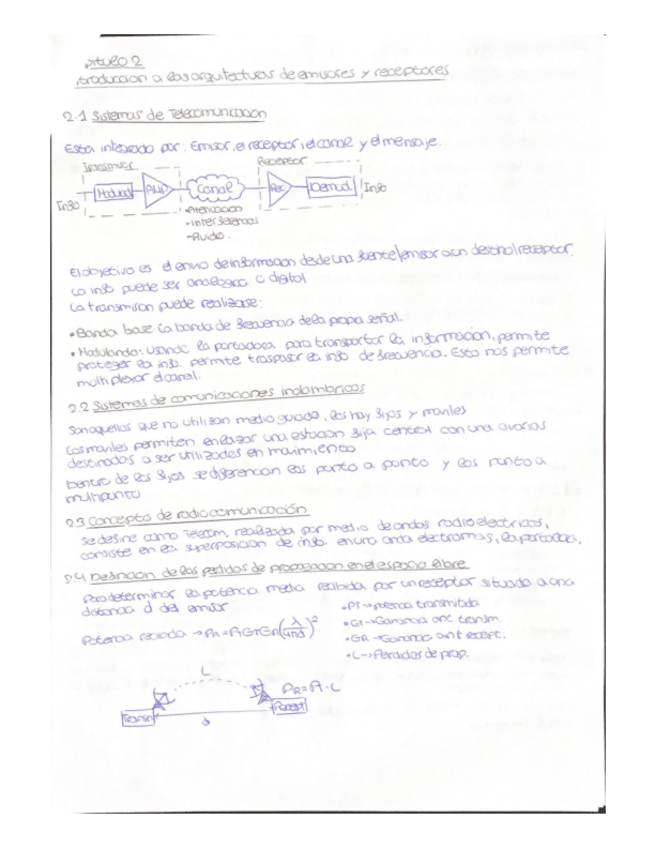 pitulo 2
troduccion a las arquitecturas de emisores y receptores
2.1 Sistemas de Telecomunicación
Esta integrado por: Emisor, el receptor, el canal y el mensaje.
Transmisor
Receptor
Info
Modulad
AMP
Canal
Rec
Demod.
Info
• Atenuacion
• Interferencias
• Ruido.
El objetivo es el envio de informacion desde una fuente/emisor a un destino/receptor.
La info puede ser analogica o digital
La transmision puede realizase:
• Banda base: La banda de frecuencia de la propia señal.
• Modulando: usando la portadora para transportar la informacion, permite
proteger la info. permite traspasar la info de frecuencia. Esto nos permite
multiplexar el canal.
2.2 Sistemas de comunicaciones inalambricos
Son aquellos que no utilizan medio guiado, los hay fijos y moviles
Los moviles permiten enlazar una estacion fija central con una o varias
destinadas a ser utilizadas en movimiento
Dentro de los fijos se diferencian los punto a punto y los punto a
multipunto
2.3 Concepto de radiocomunicación
Se define como Telecom, realizada por medio de ondas radioelectricas,
consiste en la superposicion de info. en una onda electromag, la portadora.
2.4 Definicion de las perdidas de propagacion en el espacio libre
Para determinar la potencia media recibida por un receptor situado a una
distancia d del emisor
Potencia recibida → PR=PTGTGR(λ/4πd)²
• PT → potencia transmitida
• GT → Ganancia ant transm.
• GR → Ganancia ant recept.
• L → Perdidas de prop.
L
PR = Pt - L
Transm
Recept
d